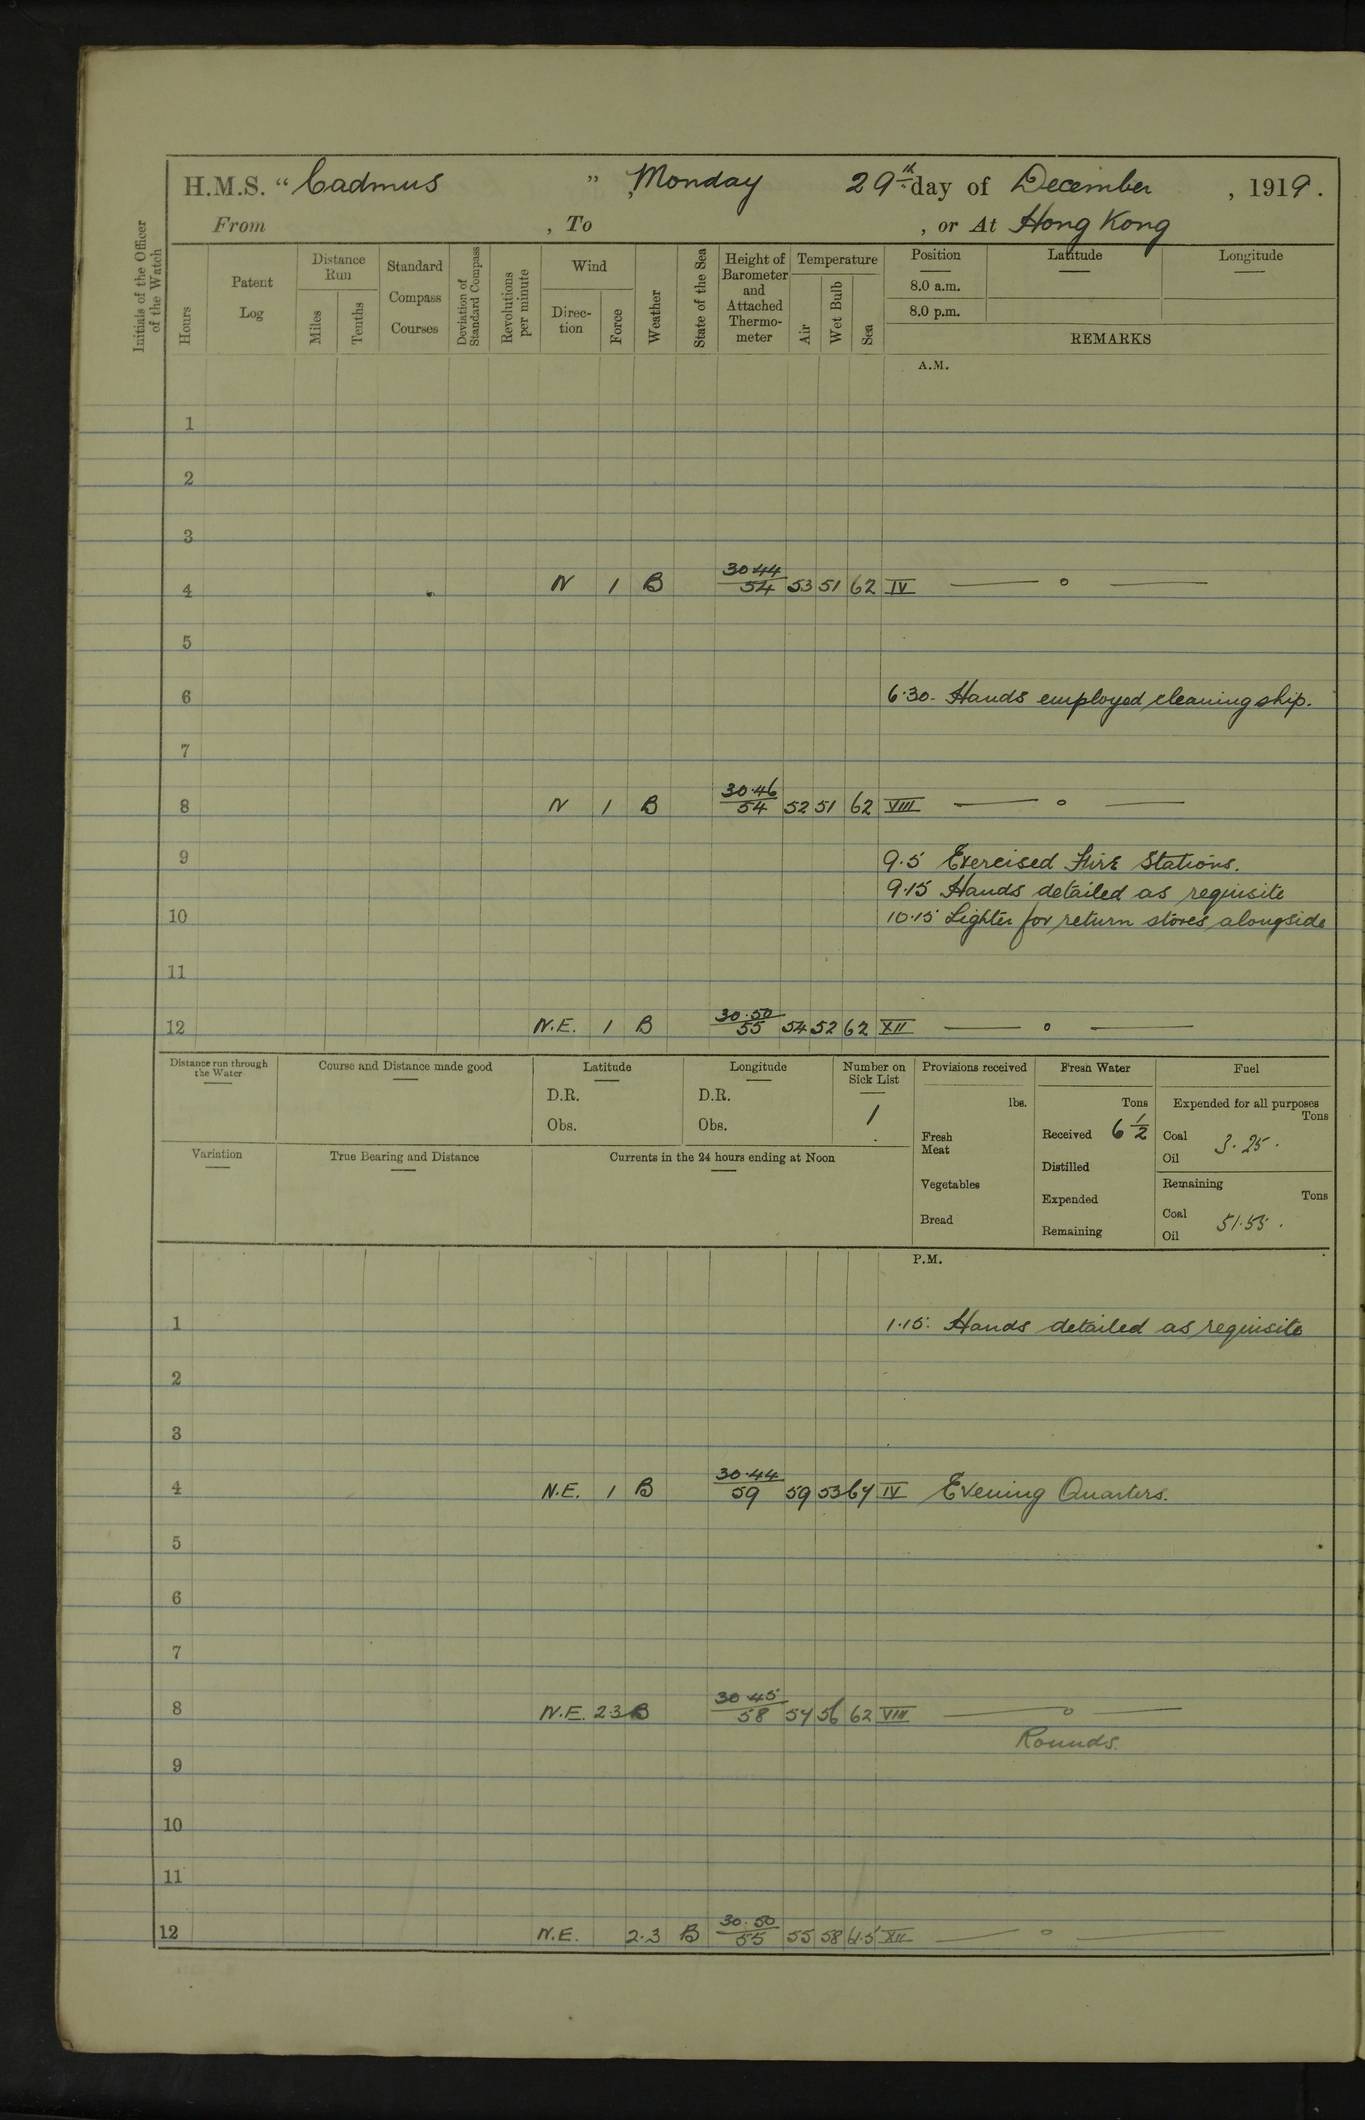 H.M.S. “Cadmus ”, Monday 29th day of December, 1919.
From , To , or At Hong Kong
Initials of the Officer of the Watch
Hours
Patent Log
Distance Run
Miles
Tenths
Standard Compass Courses
Deviation of Standard Compass
Revolutions per minute
Wind
Direction
Force
Weather
State of the Sea
Height of Barometer and Attached Thermometer
Temperature
Air
Wet Bulb
Sea
Position
8.0 a.m.
8.0 p.m.
Latitude
Longitude
REMARKS
A.M.
1
2
3
4 N 1 B 30.44/54 53 51 62 IV — o —
5
6 6.30 - Hands employed cleaning ship.
7
8 N 1 B 30.46/54 52 51 62 VIII — o —
9 9.5 Exercised Fire Stations.
9.15 Hands detailed as requisite
10 10.15 Lighter for return stores alongside
11
12 N.E. 1 B 30.50/55 54 52 62 XII — o —
Distance run through the Water
Course and Distance made good
Latitude
D.R.
Obs.
Longitude
D.R.
Obs.
Number on Sick List
1
Provisions received
lbs.
Fresh Meat
Vegetables
Bread
Fresh Water
Tons
Received 6 1/2
Distilled
Expended
Remaining
Fuel
Expended for all purposes
Tons
Coal 3.25.
Oil
Remaining
Tons
Coal 51.55.
Oil
Variation
True Bearing and Distance
Currents in the 24 hours ending at Noon
P.M.
1 1.15. Hands detailed as requisite
2
3
4 N.E. 1 B 30.44/59 59 53 IV Evening Quarters.
5
6
7
8 N.E. 2.3 B 30.45/58 56 62 VIII — o —
Rounds.
9
10
11
12 N.E. 2.3 B 30.50/55 55 58 XII — o —